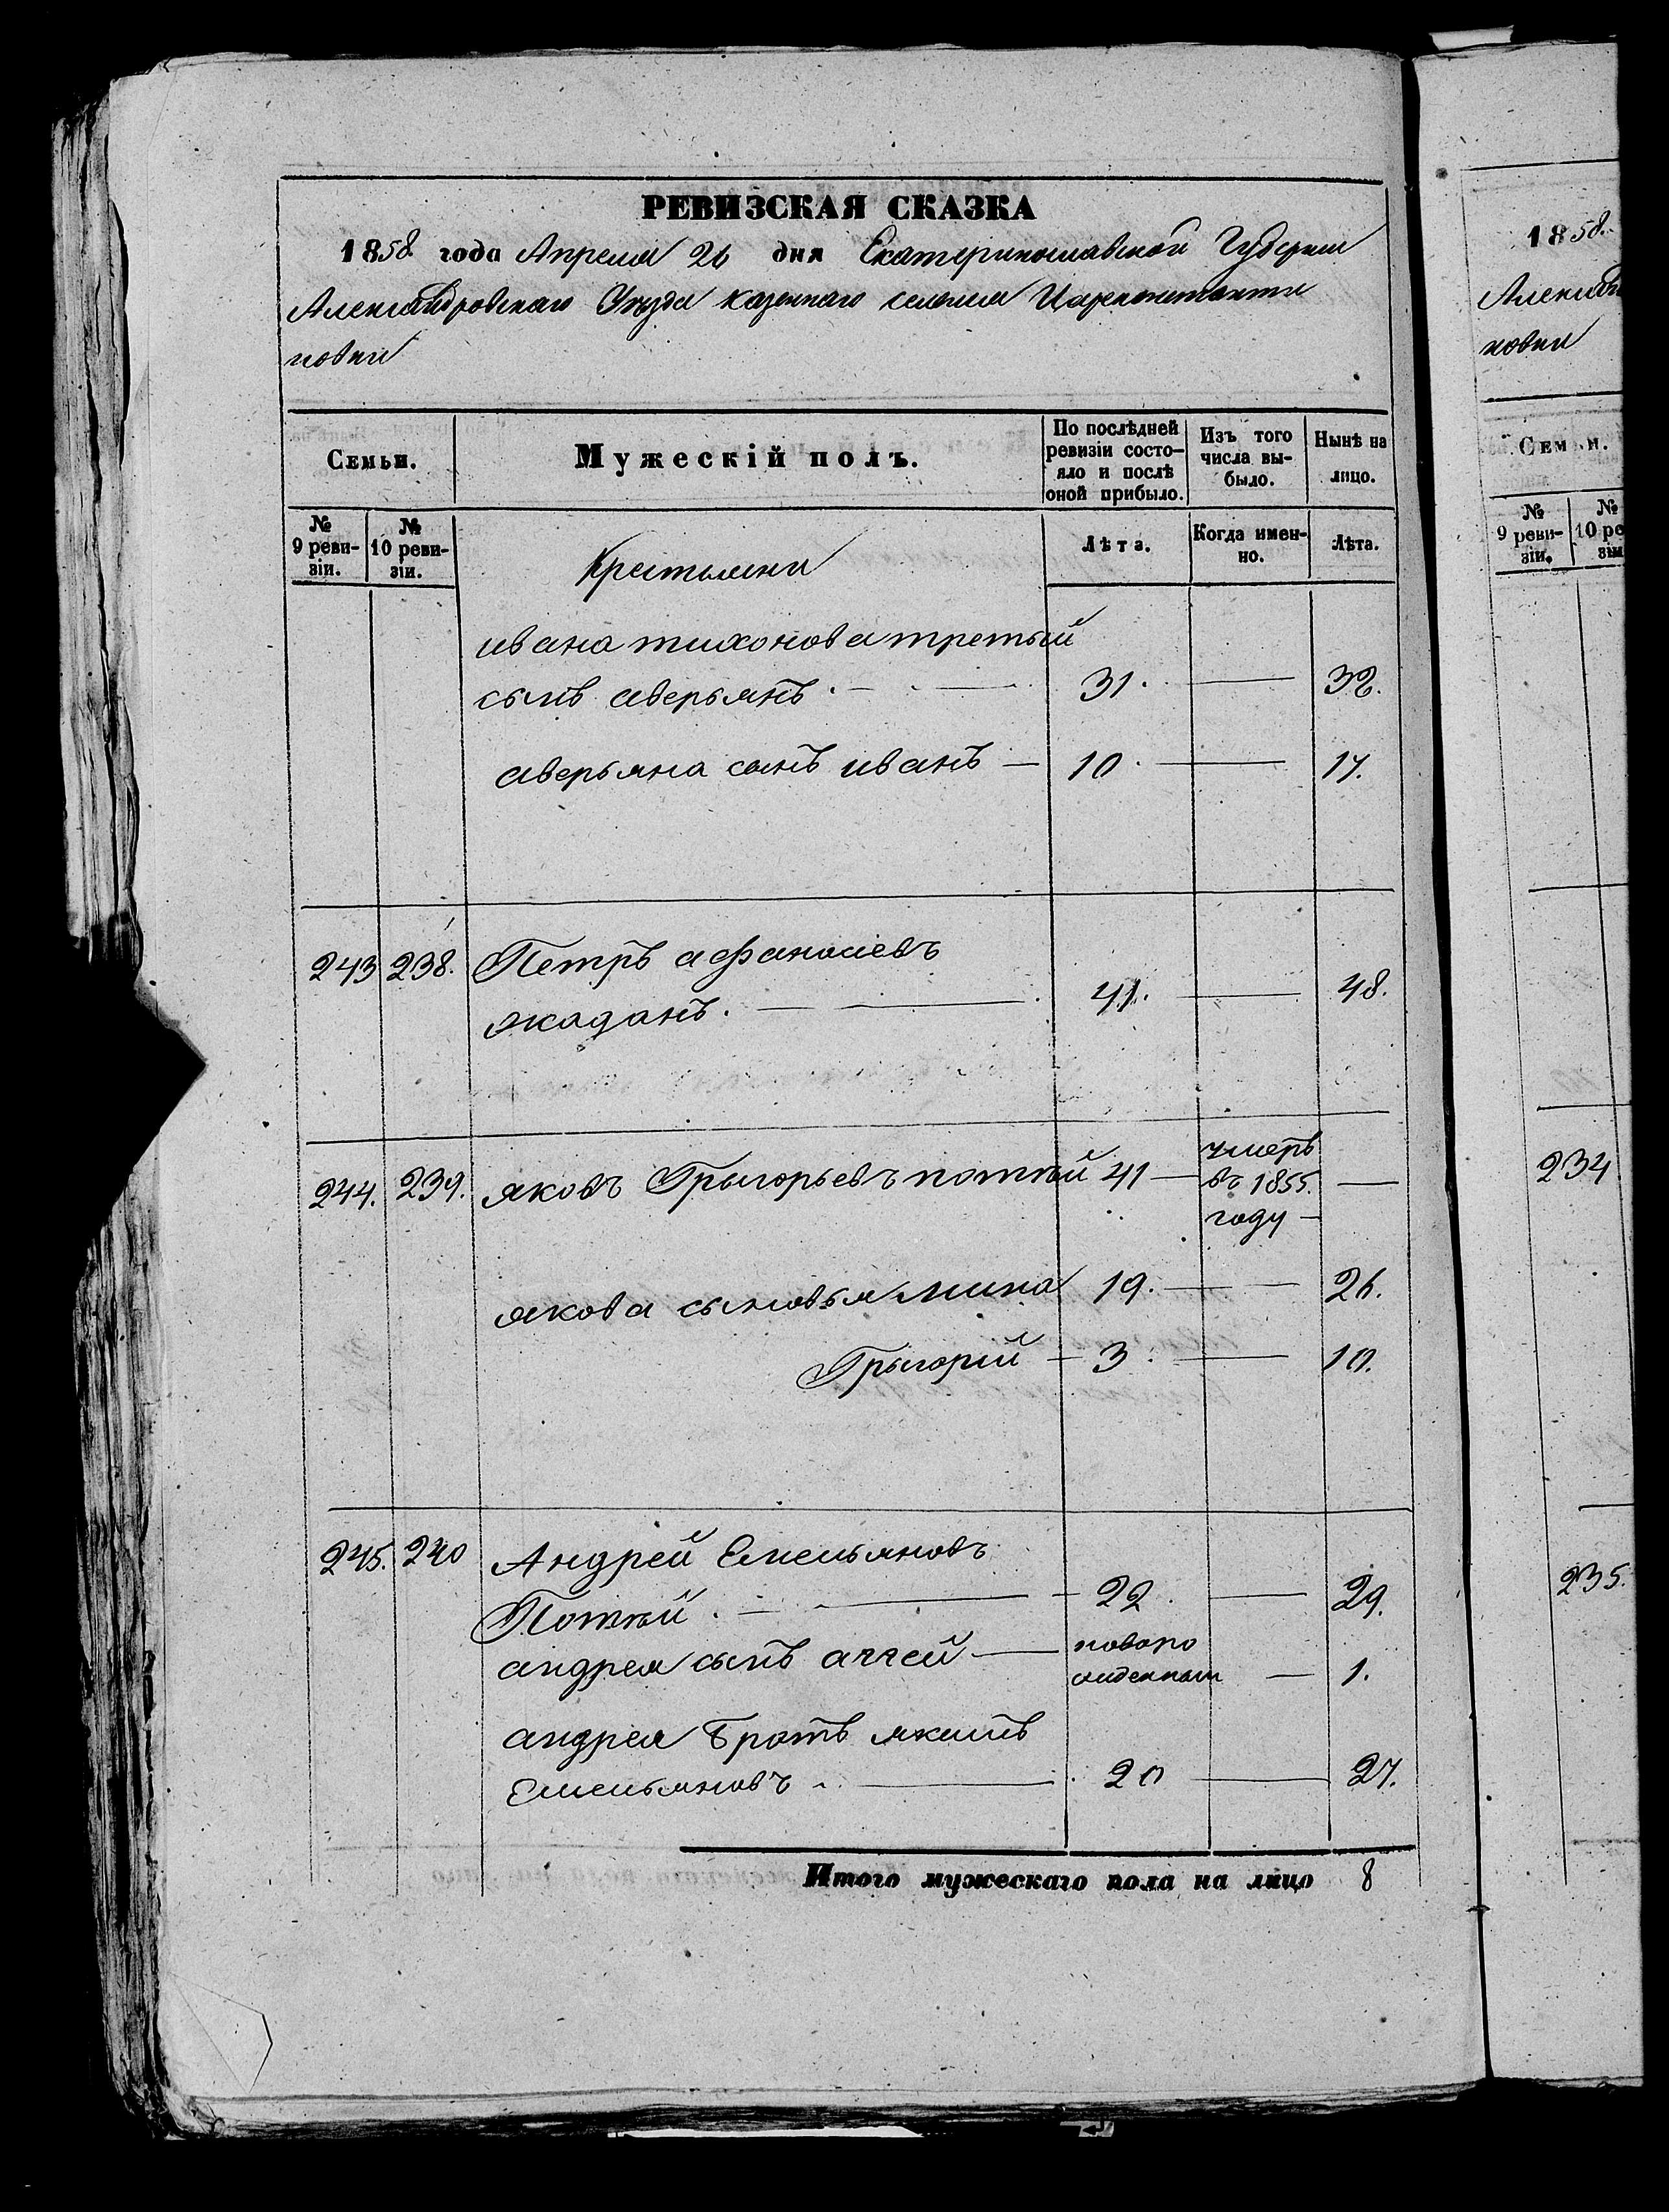 РЕВИЗСКАЯ СКАЗКА
1858 года Апреля 26 дня Екатеринославской Губернии
Александровскаго Уезда казеннаго селения Цареконстанти
новки
Семьи.
Мужескій полъ.
По послѣдней ревизіи состо-
яло и послѣ оной прибыло.
Изъ того числа вы-
было.
Нынѣ на лицо.
№ 9 реви-
зіи.
№ 10 реви-
зіи.
Лѣта.
Когда имен-
но.
Лѣта.
Крестьяни
ивана тихонова третьий
сынъ аверьянъ. 31. 38.
аверьяна сынъ иванъ — 10. 17.
243 238. Петръ афанасиевъ
жаданъ. 41. 48.
244. 239. яковъ Грыгорьевъ потпий 41 — умеръ
въ 1855.
году —
якова сыновья мина 19. 26.
Грыгорий — 3. 10.
245. 240 Андрей Емельяновъ
22. 29.
андрея сынъ аггей — новоро
жденный — 1.
андрея Братъ якимъ
Емельяновъ. 20 27.
Итого мужескаго пола на лицо 8
1858.
новки
Сем и.
№ 9 реви-
зіи.
№
10 ре
зіи
234
235.